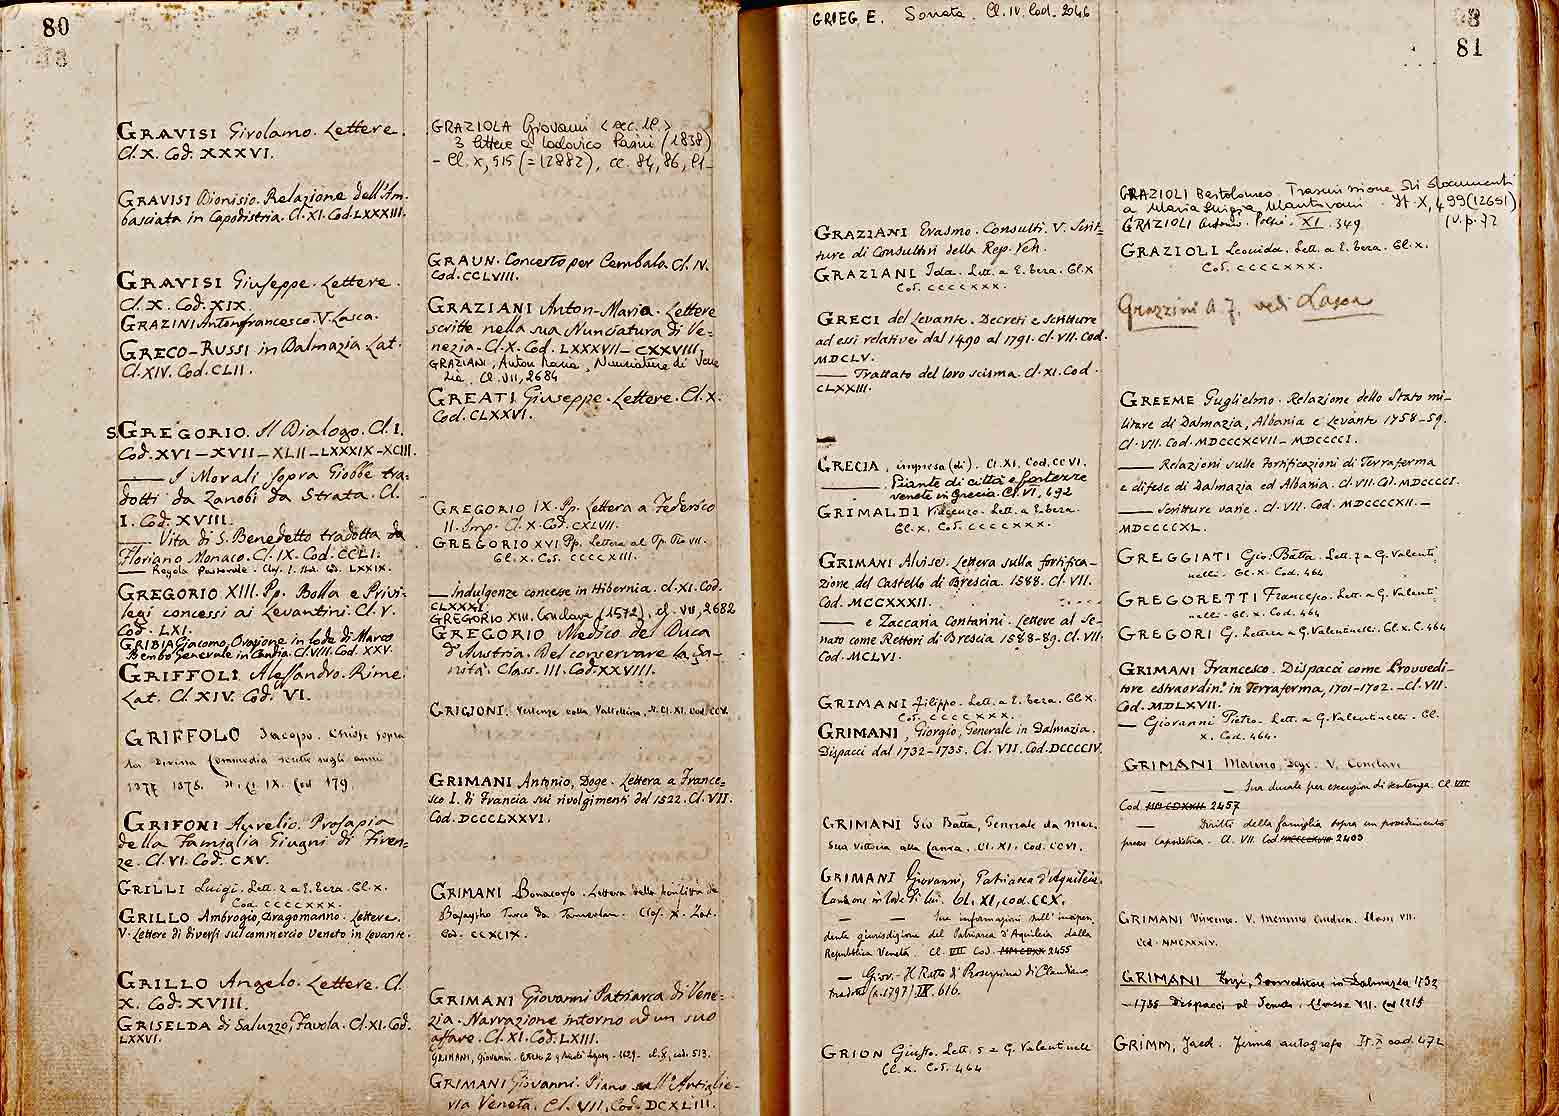 80
GRAVISI Girolamo. Lettere.
Cl. X. Cod. XXXVI.
GRAVISI Dionisio. Relazione dell'Am-
basciata in Capodistria. Cl. XI. Cod. LXXXIII.
GRAVISI Giuseppe. Lettere.
Cl. X. Cod. XIX.
GRAZINI Antonfrancesco. V. Lasca.
GRECO-RUSSI in Dalmazia. Lat.
Cl. XIV. Cod. CLII.
S. GREGORIO. Il Dialogo. Cl. I.
Cod. XVI-XVII-XLII-LXXXIX-XCIII.
—— I Morali sopra Giobbe tra-
dotti da Zanobi da Strata. Cl.
I. Cod. XVIII.
—— Vita di S. Benedetto tradotta da
Floriano Monaco. Cl. IX. Cod. CCLI.
—— Regola Pastorale. Clas. I. Ital. Cod. LXXIX.
GREGORIO XIII. Pp. Bolla e Privi-
legi concessi ai Levantini. Cl. V.
Cod. LXI.
GRIBIA Giacomo, Orazione in lode di Marco
Bembo Generale in Candia. Cl. VIII. Cod. XXV.
GRIFFOLI Alessandro. Rime.
Lat. Cl. XIV. Cod. VI.
GRIFFOLO Jacopo. Chiose sopra
la Divina Commedia scritte negli anni
1377 1378. It. Cl. IX. Cod 179.
GRIFONI Aurelio. Prosapia
della Famiglia Giugni di Firen-
ze. Cl. VI. Cod. CXV.
GRILLI Luigi. Lett. 2 a E. Bera. Cl. X.
Cod. CCCCXXX.
GRILLO Ambrogio, Dragomanno. Lettere.
V. Lettere di diversi sul commercio Veneto in Levante.
GRILLO Angelo. Lettere. Cl.
X. Cod. XVIII.
GRISELDA di Saluzzo, Favola. Cl. XI. Cod.
LXXVI.
GRAZIOLA Giovanni (sec. 19.)
3 lettere a Lodovico Pasini (1838)
- Cl. X, 515 (=12882), cc. 84, 86, 91-
GRAUN. Concerto per Cembalo. Cl. IV.
Cod. CCLVIII.
GRAZIANI Anton-Maria. Lettere
scritte nella sua Nunciatura di Ve=
nezia. Cl. X. Cod. LXXXVII-CXXVIII.
GRAZIANI, Anton Maria, Nunciature di Vene
zia. Cl. VII, 2684
GREATI Giuseppe. Lettere. Cl. X.
Cod. CLXXVI.
GREGORIO IX. Pp. Lettera a Federico
II. Imp. Cl. X. Cod. CXLVII.
GREGORIO XVI Pp. Lettera al Pp. Pio VII.
Cl. X. Cod. CCCCXIII.
— Indulgenze concesse in Hibernia. Cl. XI. Cod.
CLXXXI.
GREGORIO XIII, Conclave (1572), Cl. VII, 2682
GREGORIO Medico del Duca
d'Austria. Del conservare la Sa-
nità. Class. III. Cod. XXVIII.
GRIGIONI. Vertenze colla Valtellina. It. Cl. XI. Cod. CCV.
GRIMANI Antonio, Doge. Lettera a France=
sco I. di Francia sui rivolgimenti del 1522. Cl. VII.
Cod. DCCCLXXVI.
GRIMANI Bonacorso. Lettera della sconfitta de
Bajaysito Turco da Tamerlan. Class. X. Lat.
Cod. CCXCIX.
GRIMANI Giovanni Patriarca di Vene-
zia. Narrazione intorno ad un suo
affare. Cl. XI. Cod. LXIII.
GRIMANI, Giovanni. 1629. Cl. X, cod. 513.
GRIMANI Giovanni. Piano sull'Artiglie-
ria Veneta. Cl. VII. Cod. DCXLIII.
GRIEG E. Sonata. Cl. IV. Cod. 2046
GRAZIANI Erasmo. Consulti. V. Scrit=
ture di Consultori della Rep. Ven.
GRAZIANI Ida. Lett. a E. Bera. Cl. X
Cod. CCCCXXX.
GRECI del Levante. Decreti e Scritture
ad essi relative dal 1490 al 1791. Cl. VII. Cod.
MDCLV.
—— Trattato del loro scisma. Cl. XI. Cod.
CLXXIII.
GRECIA, impresa (di). Cl. XI. Cod. CCVI.
——. Piante di città e fortezze
venete in Grecia. Cl. VI, 692
GRIMALDI Vincenzo. Lett. a E. Bera.
Cl. X. Cod. CCCCXXX.
GRIMANI Alvise. Lettera sulla fortifica-
zione del Castello di Brescia. 1588. Cl. VII.
Cod. MCCXXXII.
—— e Zaccaria Contarini. Lettere al Se-
nato come Rettori di Brescia 1588-89. Cl. VII.
Cod. MCLVI.
GRIMANI Filippo. Lett. a E. Bera. Cl. X.
Cod. CCCCXXX.
GRIMANI, Giorgio, Generale in Dalmazia.
Dispacci dal 1732-1735. Cl. VII. Cod. DCCCCIV.
GRIMANI Gio Batta, Generale da Mar.
Sua vittoria alla Canea. Cl. XI. Cod. CCVI.
GRIMANI Giovanni, Patriarca d'Aquileia.
Canzone in lode di lui. Cl. XI, cod. CCX.
— — Sue informazioni sull'indipen
dente giurisdizione del Patriarca d'Aquileia dalla
Repubblica Veneta. Cl. VII Cod. MMCDXX 2455
— Giov. - Il Ratto di Proserpina di Claudiano
tradotto (a. 1797) IX. 616.
GRION Giusto. Lett. 5 a G. Valentinelli
Cl. X. Cod. 464
81
GRAZIOLI Bartolomeo. Trasmissione di documenti
a Maria Luigia Mantovani. It. X, 499 (12651)
GRAZIOLI Antonio. Poesi. XI. 349 (v. p. 72
GRAZIOLI Leonida. Lett. a E. Bera. Cl. X.
Cod. CCCCXXX.
Grazzini A. F. vedi Lasca
GREEME Guglielmo. Relazione dello Stato mi-
litare di Dalmazia, Albania e Levante 1758-59.
Cl. VII. Cod. MDCCCXCVII-MDCCCCI.
—— Relazioni sulle Fortificazioni di Terraferma
e difese di Dalmazia ed Albania. Cl. VII. Cod. MDCCCCI.
—— Scritture varie. Cl. VII. Cod. MDCCCCXII. —
MDCCCCXL.
GREGGIATI Gio: Batta. Lett. 7 a G. Valenti
nelli. Cl. X. Cod. 464
GREGORETTI Francesco. Lett. a G. Valenti
nelli. Cl. X. Cod. 464
GREGORI G. Lettera a G. Valentinelli. Cl. X. C. 464
GRIMANI Francesco. Dispacci come Provvedi-
tore estraordin.o in Terraferma, 1701-1702. - Cl. VII.
Cod. MDLXVII.
— Giovanni Pietro. Lett. a G. Valentinelli. Cl.
X. Cod. 464.
GRIMANI Marino, Doge. V. Conclavi
— — Sua ducale per esecuzion di sentenza. Cl VII
Cod. MMCDXXII 2457
— Diritti della famiglia sopra un possedimento
presso Capodistria. Cl. VII. Cod. 2403
GRIMANI Vincenzo. V. Memmo Andrea. Classe VII.
Cod. MMCXXXIV.
GRIMANI Zorzi, Provveditore in Dalmazia 1732
-1735 Dispacci al Senato. Classe VII. Cod 1215
GRIMM, Jacob. Firma autografa It. X cod. 472